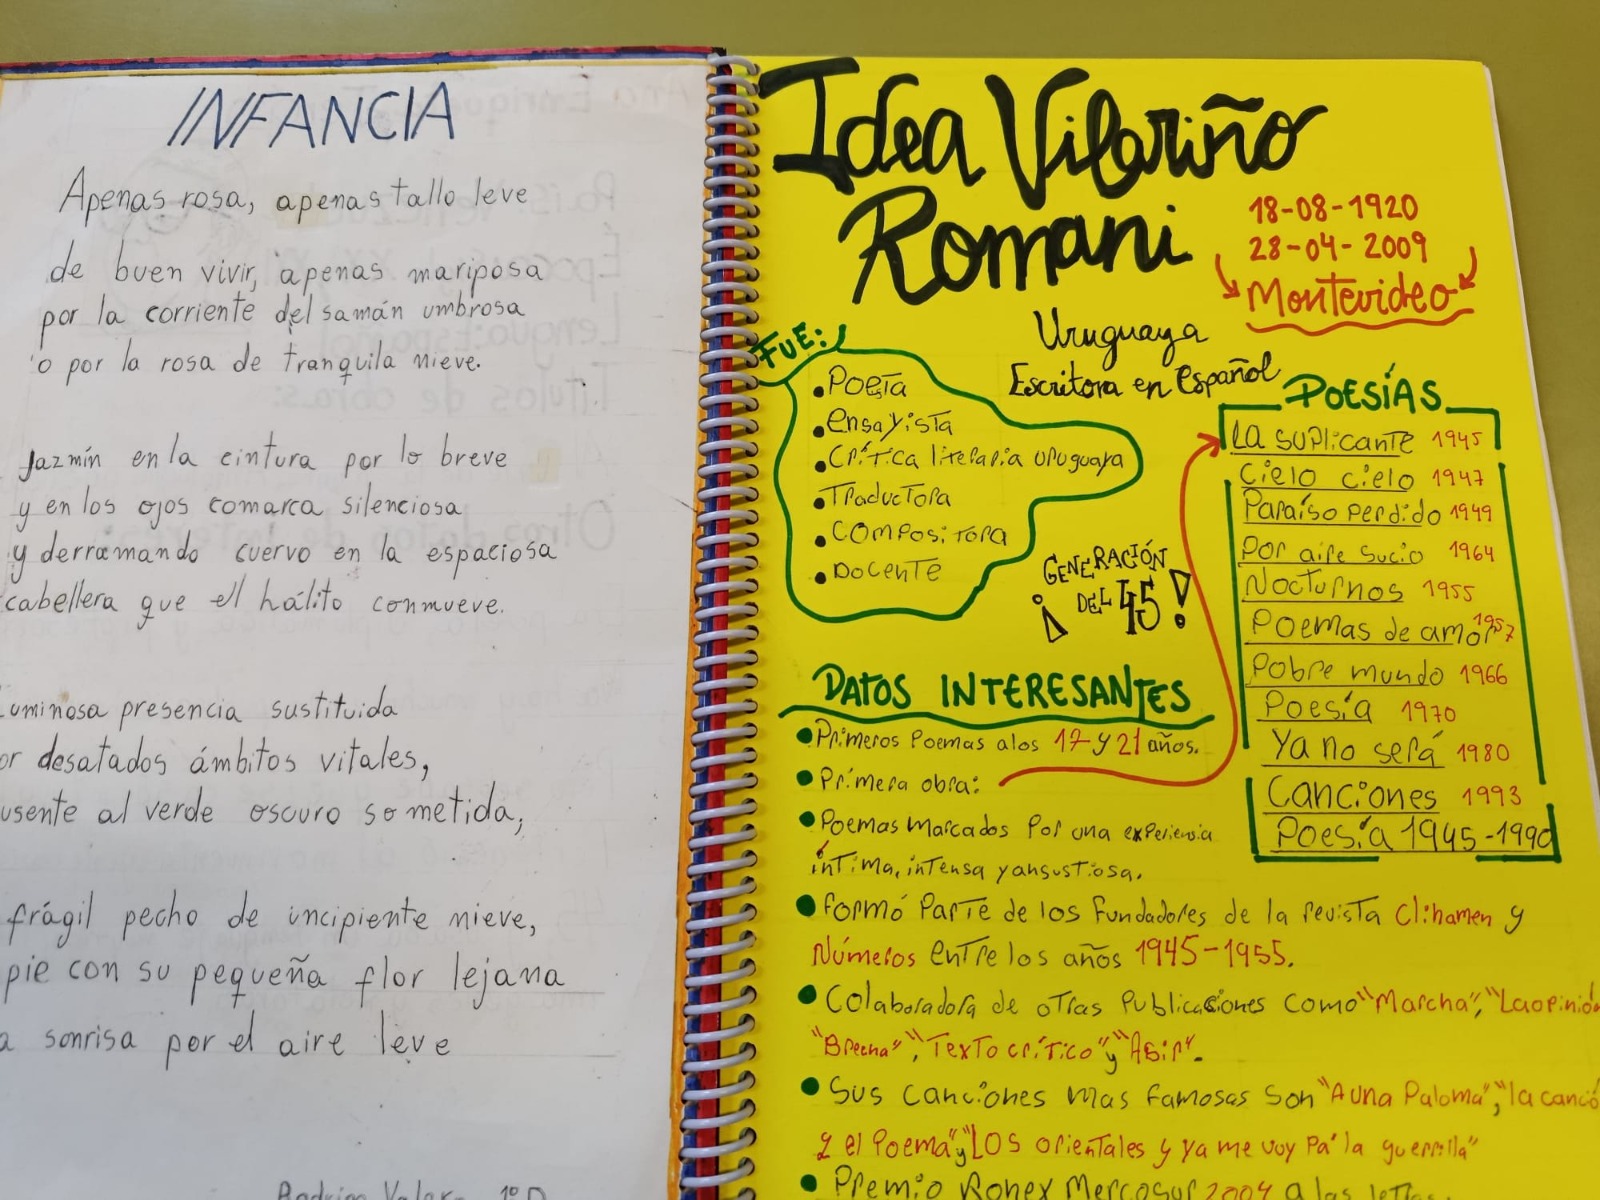 INFANCIA
Apenas rosa, apenas tallo leve
de buen vivir, apenas mariposa
por la corriente del samán umbrosa
o por la rosa de tranquila nieve.
Jazmín en la cintura por lo breve
y en los ojos comarca silenciosa
y derramando cuervo en la espaciosa
cabellera que el hálito conmueve.
uminosa presencia sustituida
or desatados ámbitos vitales,
usente al verde oscuro sometida,
frágil pecho de incipiente nieve,
pie con su pequeña flor lejana
a sonrisa por el aire leve
Idea Vilariño
Romani
18-08-1920
28-04-2009
Montevideo
Uruguaya
Escritora en Español
FUE:
• Poeta
• ensayista
• Crítica literaria uruguaya
• Traductora
• Compositora
• Docente
¡GENERACIÓN
DEL 45!
POESÍAS
La suplicante 1945
Cielo cielo 1947
Paraíso perdido 1949
Por aire sucio 1964
Nocturnos 1955
Poemas de amor 1957
Pobre mundo 1966
Poesía 1970
Ya no será 1980
Canciones 1993
Poesía 1945-1990
DATOS INTERESANTES
• Primeros Poemas a los 17 y 21 años.
• Primera obra:
• Poemas marcados por una experiencia
íntima, intensa y angustiosa.
• Formó parte de los fundadores de la revista Clihamen y
Números entre los años 1945-1955.
• Colaboradora de otras publicaciones como "Marcha", "La opinión
"Brecha", "Texto crítico" y "Asir".
• Sus canciones mas famosas son "A una Paloma", "la canció
y el poema" y "Los orientales y ya me voy pa' la guerrilla"
• Premio Konex Mercosur 2004 a las letras.